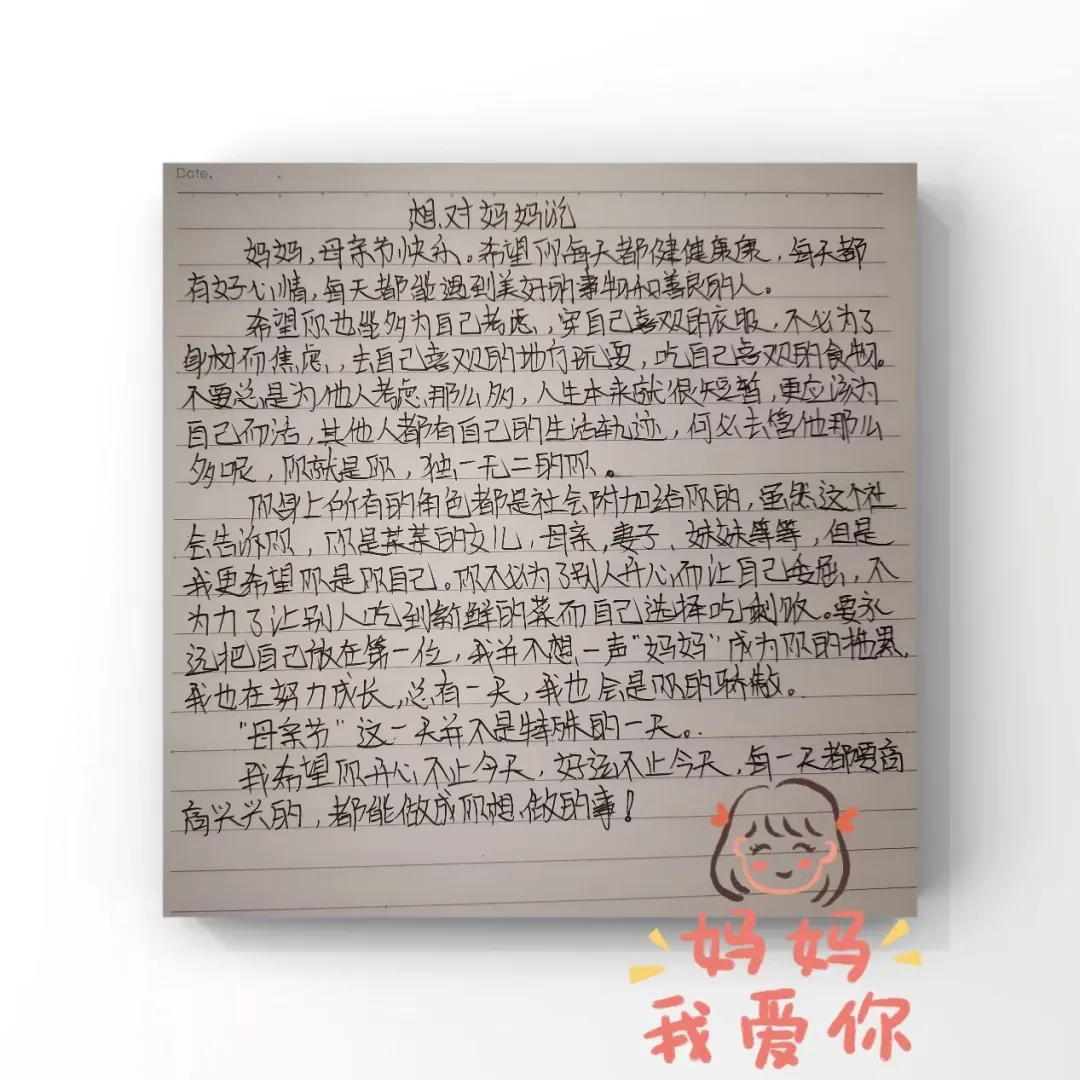 Date.
想对妈妈说
妈妈,母亲节快乐。希望你每天都健健康康,每天都
有好心情,每天都能遇到美好的事物和善良的人。
希望你也能多为自己考虑,穿自己喜欢的衣服,不必为了
身材而焦虑,去自己喜欢的地方玩耍,吃自己喜欢的食物。
不要总是为他人考虑那么多,人生本来就很短暂,更应该为
自己而活,其他人都有自己的生活轨迹,何必去管他那么
多呢,你就是你,独一无二的你。
你身上所有的角色都是社会附加给你的,虽然这个社
会告诉你,你是某某的女儿,母亲,妻子、妹妹等等,但是
我更希望你是你自己。你不必为了别人开心而让自己委屈,不
为了让别人吃到新鲜的菜而自己选择吃剩饭。要永
远把自己放在第一位,我并不想一声“妈妈”成为你的拖累,
我也在努力成长,总有一天,我也会是你的骄傲。
“母亲节”这一天并不是特殊的一天。
我希望你开心不止今天,好运不止今天,每一天都要高
高兴兴的,都能做成你想做的事!
妈妈
我爱你